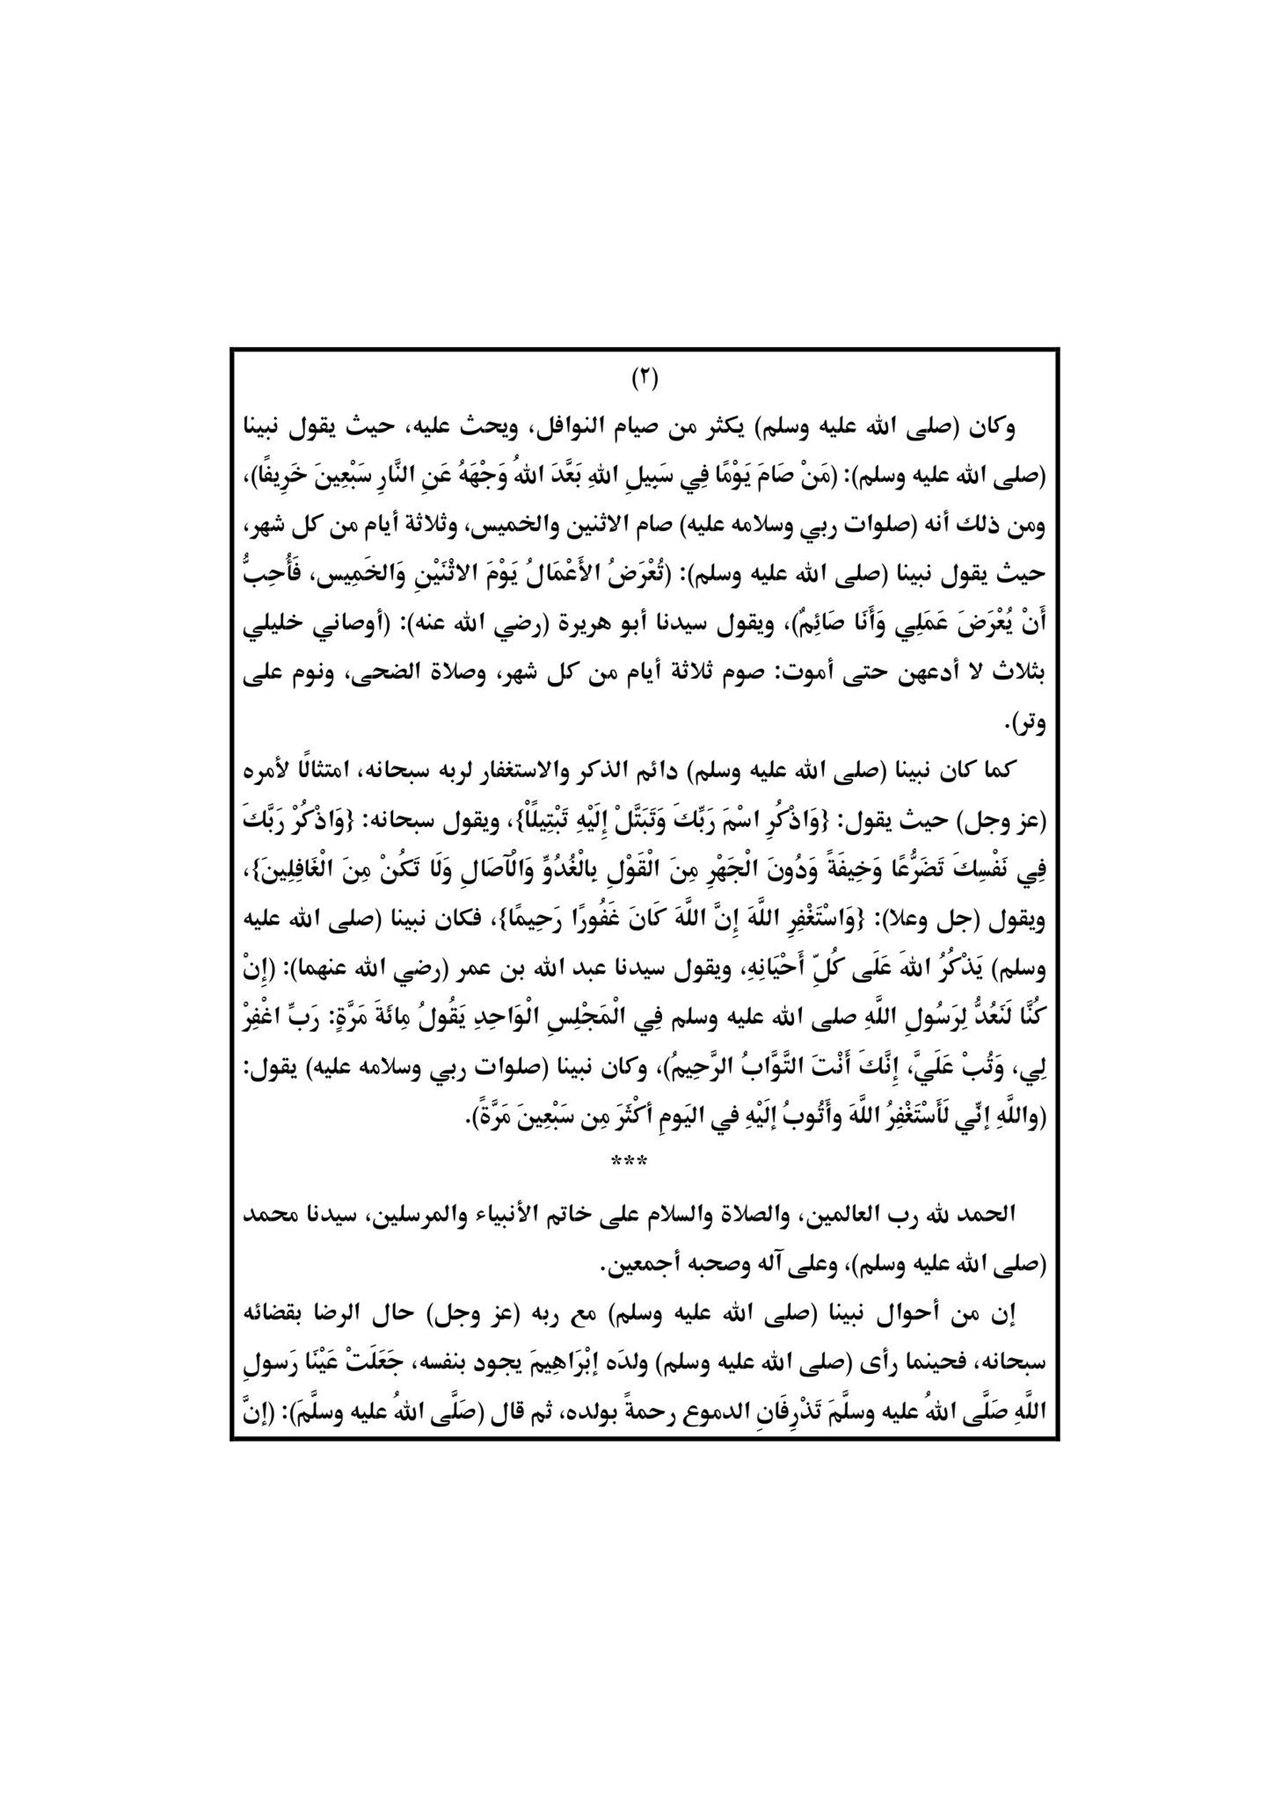 (٢)
وكان (صلى الله عليه وسلم) يكثر من صيام النوافل، ويحث عليه، حيث يقول نبينا
(صلى الله عليه وسلم): (مَنْ صَامَ يَوْمًا فِي سَبِيلِ اللهِ بَعَّدَ اللهُ وَجْهَهُ عَنِ النَّارِ سَبْعِينَ خَرِيفًا)،
ومن ذلك أنه (صلوات ربي وسلامه عليه) صام الاثنين والخميس، وثلاثة أيام من كل شهر،
حيث يقول نبينا (صلى الله عليه وسلم): (تُعْرَضُ الأَعْمَالُ يَوْمَ الاثْنَيْنِ وَالخَمِيس، فَأُحِبُّ
أَنْ يُعْرَضَ عَمَلِي وَأَنَا صَائِمٌ)، ويقول سيدنا أبو هريرة (رضي الله عنه): (أوصاني خليلي
بثلاث لا أدعهن حتى أموت: صوم ثلاثة أيام من كل شهر، وصلاة الضحى، ونوم على
وتر).
كما كان نبينا (صلى الله عليه وسلم) دائم الذكر والاستغفار لربه سبحانه، امتثالًا لأمره
(عز وجل) حيث يقول: {وَاذْكُرِ اسْمَ رَبِّكَ وَتَبَتَّلْ إِلَيْهِ تَبْتِيلًا}، ويقول سبحانه: {وَاذْكُرْ رَبَّكَ
فِي نَفْسِكَ تَضَرُّعًا وَخِيفَةً وَدُونَ الْجَهْرِ مِنَ الْقَوْلِ بِالْغُدُوِّ وَالْآصَالِ وَلَا تَكُنْ مِنَ الْغَافِلِينَ}،
ويقول (جل وعلا): {وَاسْتَغْفِرِ اللَّهَ إِنَّ اللَّهَ كَانَ غَفُورًا رَحِيمًا}، فكان نبينا (صلى الله عليه
وسلم) يَذْكُرُ اللهَ عَلَى كُلِّ أَحْيَانِهِ، ويقول سيدنا عبد الله بن عمر (رضي الله عنهما): (إِنْ
كُنَّا لَنَعُدُّ لِرَسُولِ اللَّهِ صلى الله عليه وسلم فِي الْمَجْلِسِ الْوَاحِدِ يَقُولُ مِائَةَ مَرَّةٍ: رَبِّ اغْفِرْ
لِي، وَتُبْ عَلَيَّ، إِنَّكَ أَنْتَ التَّوَّابُ الرَّحِيمُ)، وكان نبينا (صلوات ربي وسلامه عليه) يقول:
(واللَّهِ إنِّي لَأَسْتَغْفِرُ اللَّهَ وأَتُوبُ إلَيْهِ في اليَومِ أكْثَرَ مِن سَبْعِينَ مَرَّةً).
***
الحمد لله رب العالمين، والصلاة والسلام على خاتم الأنبياء والمرسلين، سيدنا محمد
(صلى الله عليه وسلم)، وعلى آله وصحبه أجمعين.
إن من أحوال نبينا (صلى الله عليه وسلم) مع ربه (عز وجل) حال الرضا بقضائه
سبحانه، فحينما رأى (صلى الله عليه وسلم) ولدَه إبْرَاهِيمَ يجود بنفسه، جَعَلَتْ عَيْنَا رَسولِ
اللَّهِ صَلَّى اللهُ عليه وسلَّمَ تَذْرِفَانِ الدموع رحمةً بولده، ثم قال (صَلَّى اللهُ عليه وسلَّمَ): (إنَّ